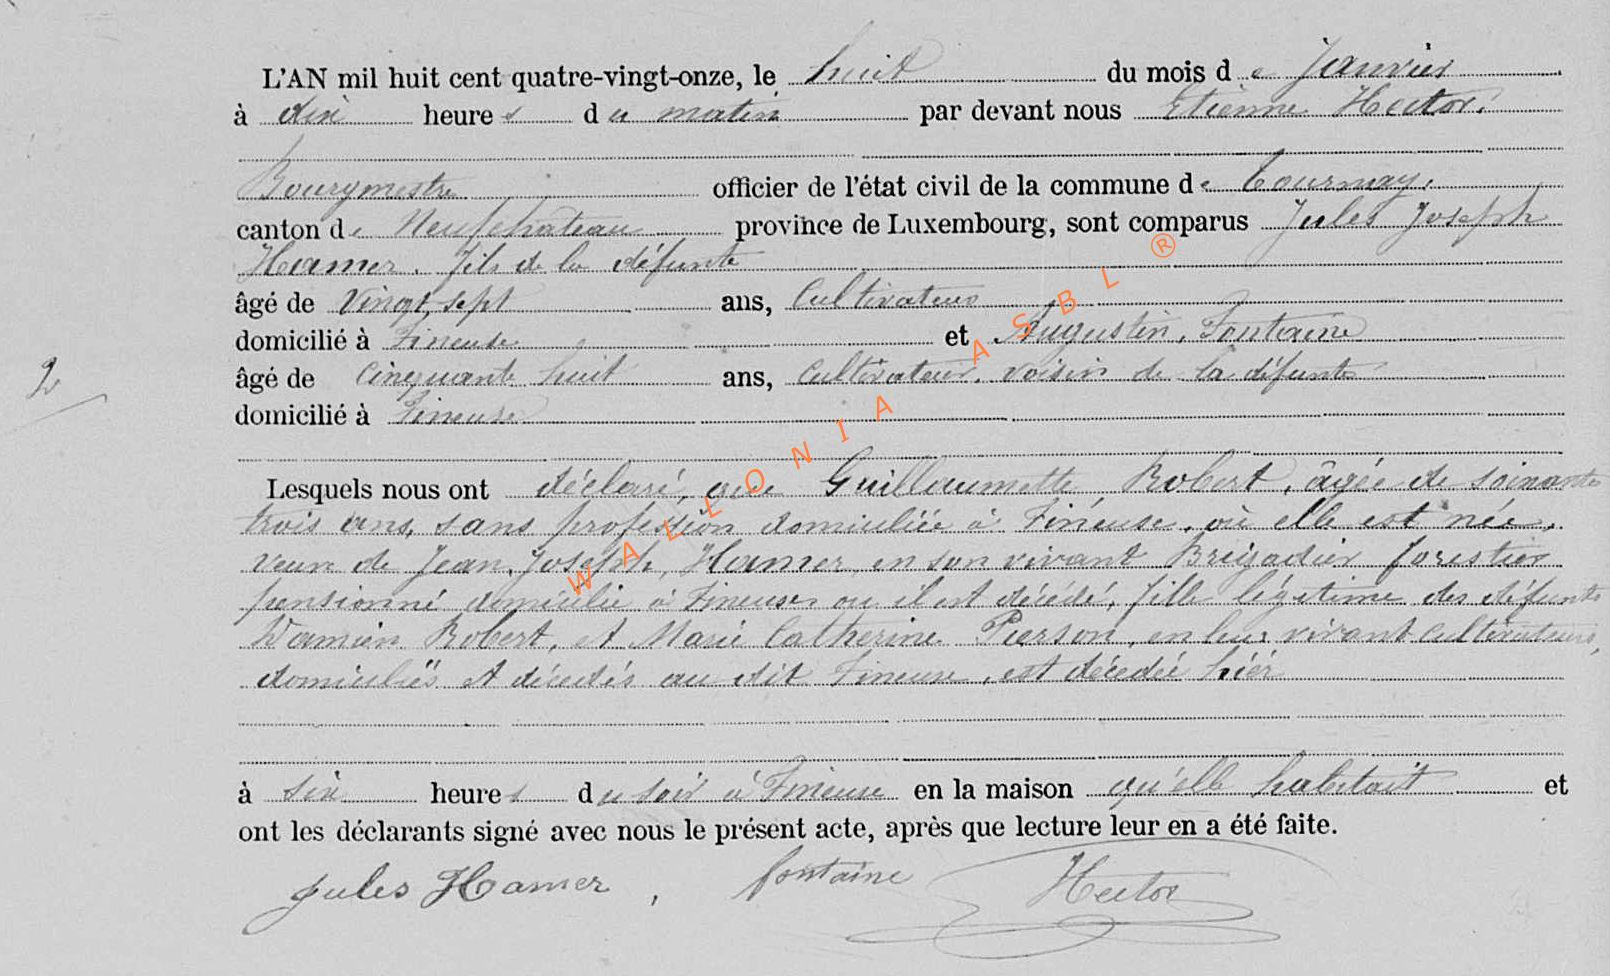 L'AN mil huit cent quatre-vingt-onze, le huit du mois de Janvier
à dix heures du matin par devant nous Etienne Hector,
Bourgmestre officier de l'état civil de la commune de Tournay,
canton de Neufchateau province de Luxembourg, sont comparus Jules Joseph
Hamer, fils de la défunte
âgé de vingt sept ans, Cultivateur
domicilié à Tineuse et Augustin, Fontaine
âgé de cinquante huit ans, Cultivateur, voisin de la défunte
2
domicilié à Tineuse
Lesquels nous ont déclaré, que Guillaumette Robert, âgée de soixante
trois ans, sans profession domiciliée à Tineuse, où elle est née,
veuve de Jean, Joseph, Hamer, en son vivant Brigadier forestier
pensionné domicilié à Tineuse, ou il est décédé, fille légitime des défunts
Damien Robert, et Marie Catherine Pierson, en leur vivant Cultivateurs,
domiciliés et décédés au dit Tineuse, est décedée hier
à six heures du soir à Tineuse en la maison qu'elle habitait et
ont les déclarants signé avec nous le présent acte, après que lecture leur en a été faite.
Jules Hamer, fontaine Hector
WALLONIA ASBL ®